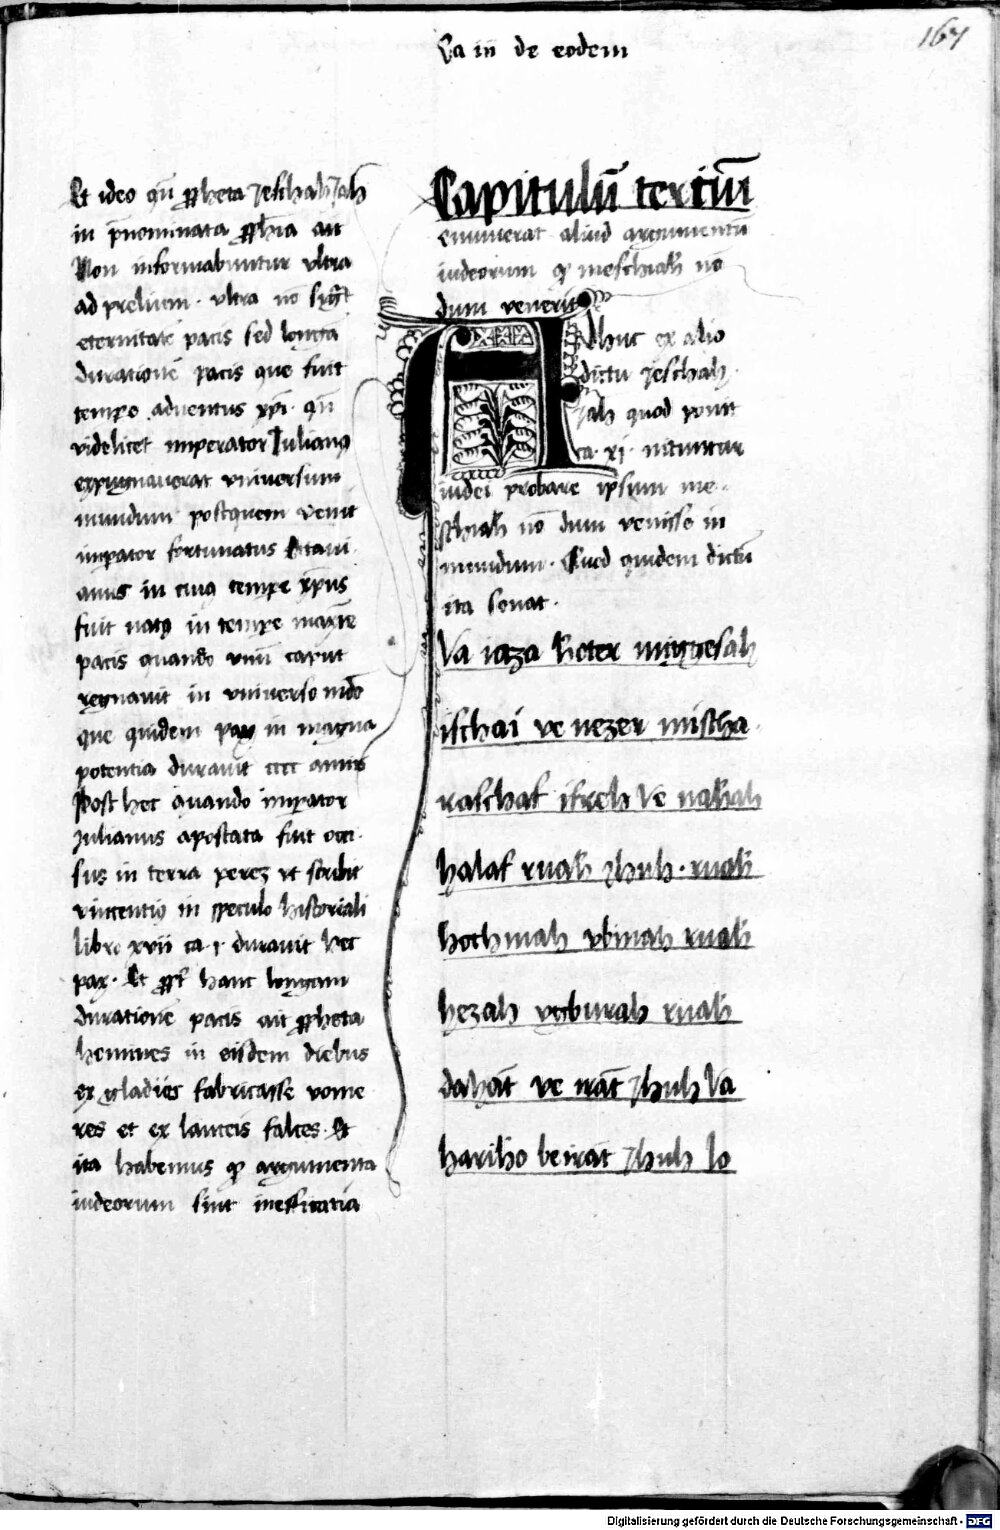 Ca iii de eodem
167
Et ideo qn̄ ꝓpheta Jeschah Jah
in p̄nominata ꝓphīa ait
Non informabuntur vltra
ad prelium · vltra nō sig͞t
eternitatē pacis sed longā
durationē pacis que fuit
tempe aduentus xpī · qn̄
videlicet imperator Julianꝰ
expugnauerat vniuersum
mundum postquem venit
impator fortunatus Octaui
anus in cuiꝰ tempe xpūs
fuit natꝰ in tempe maxīe
pacis quando vnū caput
regnauit in vniuerso mūdo
que quidem pax in magna
potentia durauit cccc annis
Post hec quando impator
Julianus apostata fuit occi
sus in terra perez vt scribit
vincentiꝰ in speculo historiali
libro xvii ca · i durauit hec
pax · Et ꝓpt̄ hanc longam
durationē pacis ait ꝓpheta
homines in eisdem diebus
ex gladiis fabricasse vome
res et ex lanceis falces · Et
ita habemus ꝙ argumenta
iudeorum sint inefficatia
Capitulū tertiūm
enumerat aliud argumentū
iudeorum ꝙ meschiah no
dum venerit
Adhuc ex alio
dictu Jeschah
Jah quod ponit
ca · xi · nituntur
iudei probare ipsum me
schiah nō dum venisse in
mundum · Quod quidem dictū
ita sonat ·
Va iaza hoter miggesah
ischai ve nezer mischa
raschaf ifreh Ve nahah
halaf ruah Jhuh · ruah
hochmah vbinah ruah
hezah vgburah ruah
dahat ve irat Jhuh Va
hariho beirat Jhuh lo
Digitalisierung gefördert durch die Deutsche Forschungsgemeinschaft - DFG